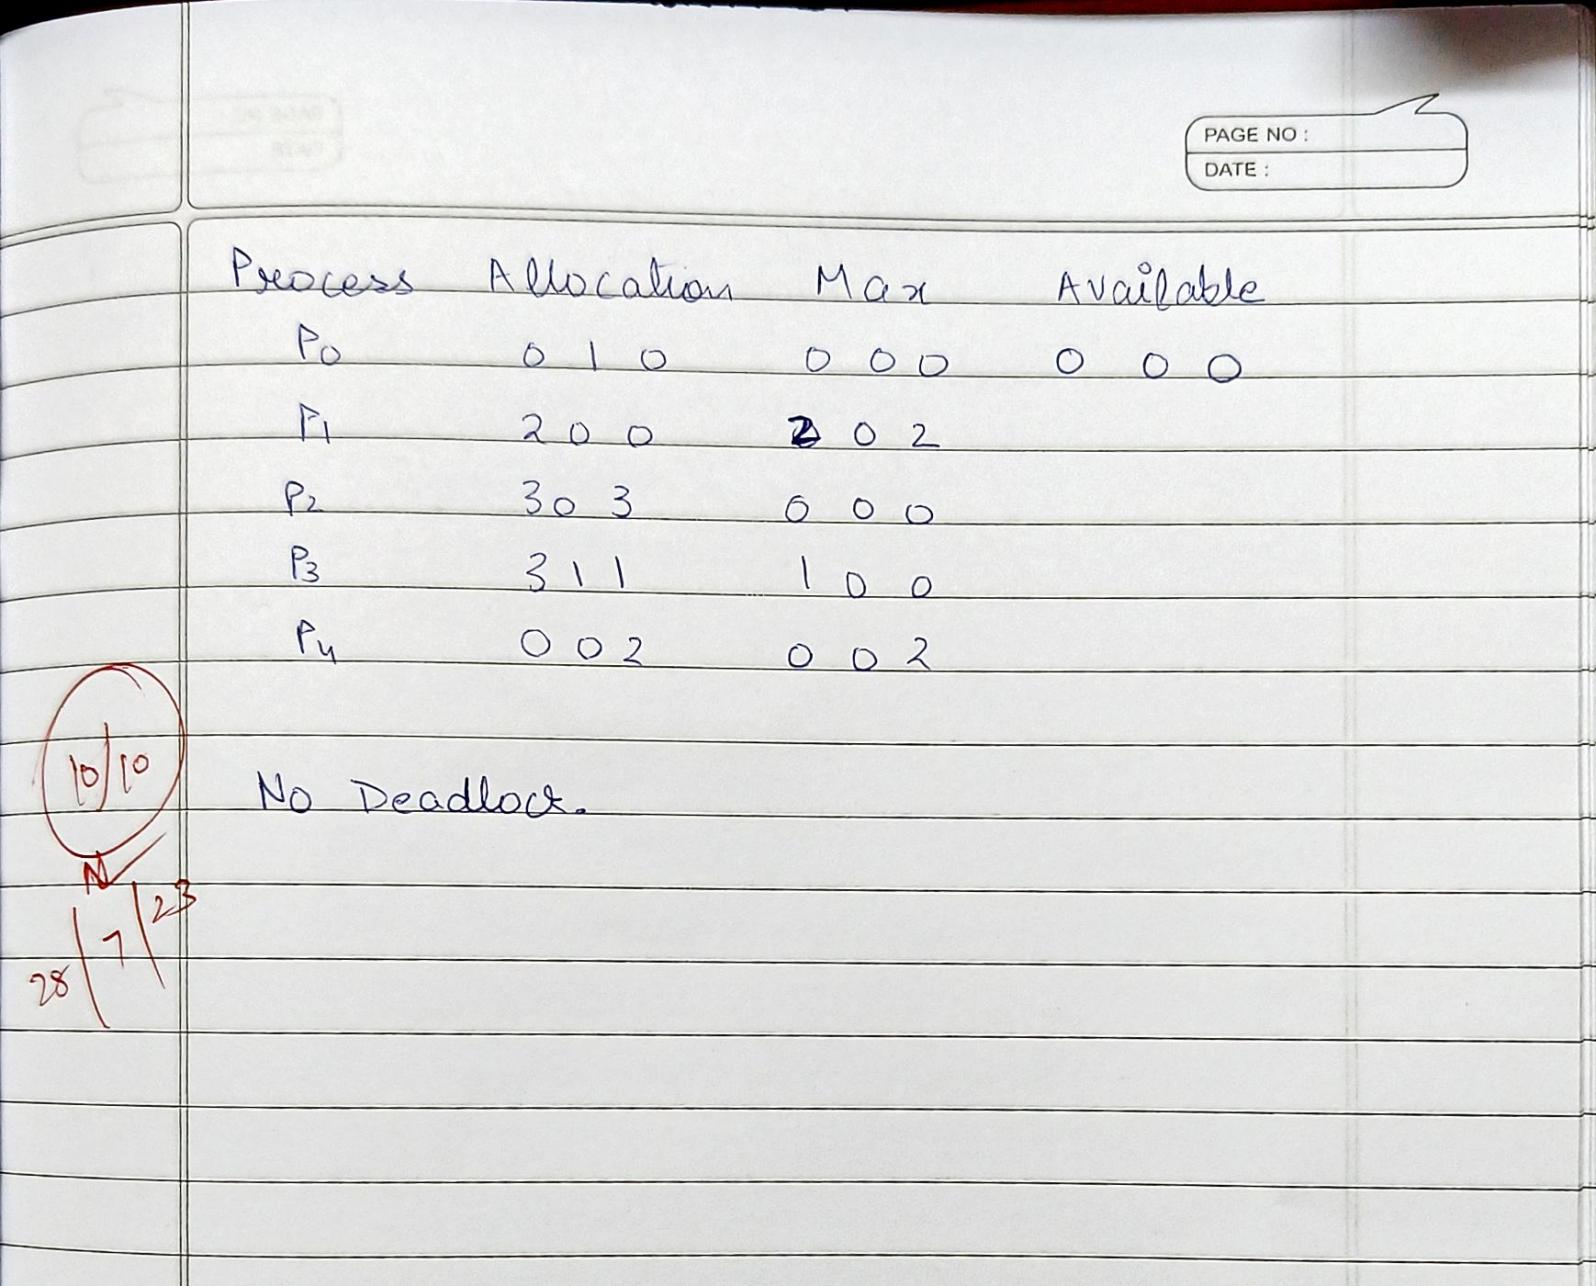 PAGE NO :
DATE :
Process Allocation Max Available
P0 0 1 0 0 0 0 0 0 0
P1 2 0 0 2 0 2
P2 3 0 3 0 0 0
P3 3 1 1 1 0 0
P4 0 0 2 0 0 2
10/10
No Deadlock.
28/7/23